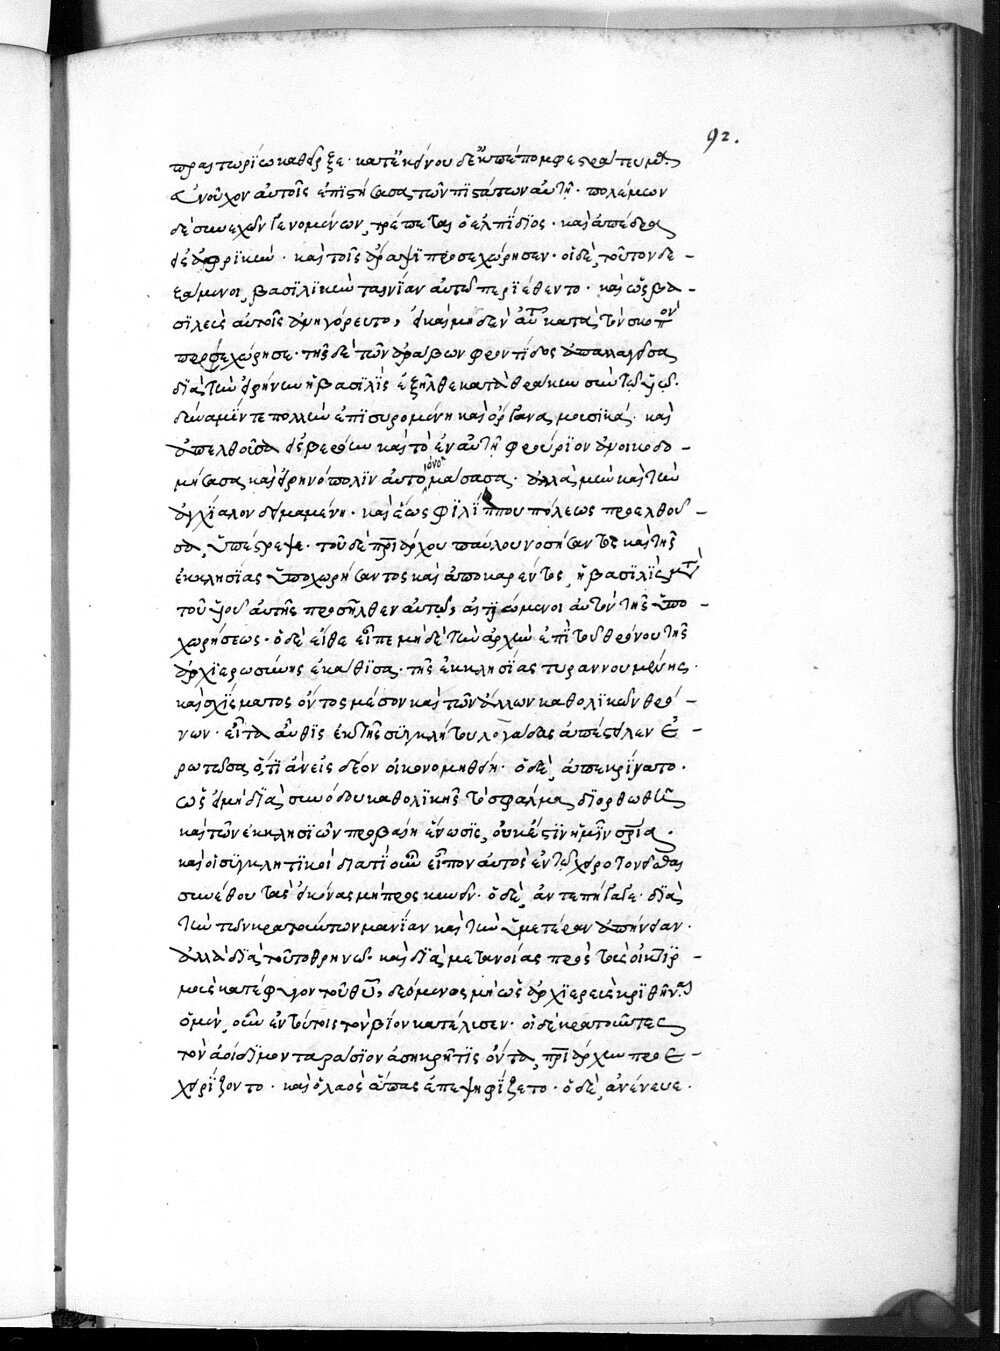 92.
πραιτωρίω καθεῖρξε · κατ' ἐκείνου δὲ ἐκπέπομφε στράτευμα
εὐνοῦχον αὐτοῖς ἐπιστήσασα τῶν πιστάτων αὐτῆ · πολέμων
δὲ συνεχῶν γενομένων, τρέπεται ὁ ἐλπίδιος · καὶ ἀπέδρα
εἰς ἀφρικὴν · καὶ τοῖς ἄραψι προσεχώρησεν · οἱ δὲ, τοῦτον δε -
ξάμενοι, βασιλικὴν ταινίαν αὐτῶ περιέθεντο · καὶ ὡς βα -
σιλεὺς αὐτοῖς ἀνηγόρευτο, εἰ καὶ μηδὲν αὐτῶ κατὰ τὸν σκοπὸν
προσεχώρησε · τῆς δὲ τῶν ἀράβων φροντίδος ἀπαλλαγεῖσα
διὰ τὴν εἰρήνην ἡ βασιλὶς ἐξῆλθε κατὰ θράκην σὺν τῶ υἱῶ ·
δύναμίν τε πολλὴν ἐπισυρομένη καὶ ὄργανα μουσικά · καὶ
ἀπελθοῦσα εἰς βερόην καὶ τὸ ἐν αὐτῆ φρούριον ἀνοικοδο -
μήσασα καὶ εἰρηνόπολιν αὐτὸ ὀνομάσασα · ἀλλὰ μὴν καὶ τὴν
ἀγχίαλον δειμαμένη · καὶ ἕως φιλίππου πόλεως προελθοῦ -
σα, ὑπέστρεψε · τοῦ δὲ πατριάρχου παύλου νοσήσαντος καὶ τῆς
ἐκκλησίας ὑποχωρήσαντος καὶ ἀποκαρέντος, ἡ βασιλὶς μετὰ
τοῦ υἱοῦ αὐτῆς προσῆλθεν αὐτῶ, αἰτιώμενοι αὐτὸν τῆς ὑπο -
χωρήσεως · ὁ δὲ εἴθε εἶπε μηδὲ τὴν ἀρχὴν ἐπὶ τοῦ θρόνου τῆς
ἀρχιερωσύνης ἐκάθισα · τῆς ἐκκλησίας τυραννουμένης ·
καὶ σχίσματος ὄντος μέσον καὶ τῶν ἄλλων καθολικῶν θρό -
νων · εἶτα αὖθις ἐκ τῆς συγκλήτου λογάδας ἀπέστειλεν ἐ -
ρωτῶσα, ὅ,τι ἂν εἰς δέον οἰκονομηθῆ · ὁ δὲ, ἀπεκρίνατο ·
ὡς εἰ μὴ διὰ συνόδου καθολικῆς τὸ σφάλμα διορθωθείη
καὶ τῶν ἐκκλησιῶν προβαίη ἕνωσις, οὐκ ἔστιν ἡμῖν σωτηρία ·
καὶ οἱ συγκλητικοὶ διατί οὖν εἶπον αὐτὸς ἐν τῶ χειροτονεῖσθαι
συνέθου τὰς εἰκόνας μὴ προσκυνεῖν · ὁ δὲ, ἀντεπήγαγε · διὰ
τὴν τῶν κρατούντων μανίαν καὶ τὴν ὑμετέραν ἀπήνειαν ·
ἀλλὰ διὰ τοῦτο θρηνῶ · καὶ διὰ μετανοίας πρὸς τοὺς οἰκτιρ -
μοὺς κατέφυγον τοῦ θεοῦ, δεόμενος μὴ ὡς ἀρχιερεὺς κριθῆναι
ὁ μὲν, οὖν ἐν τούτοις τὸν βίον κατέλυσεν · οἱ δὲ κρατοῦντες
τὸν ἀοίδιμον ταράσιον ἀσηκρῆτις ὄντα, πατριάρχην προε -
χειρίζοντο · καὶ ὁ λαὸς ἅπας ἐπεψηφίζετο · ὁ δὲ, ἀνένευε ·